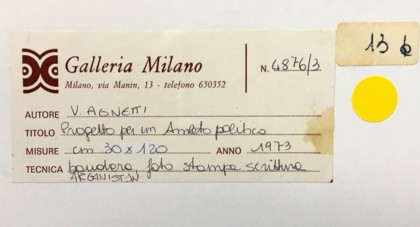 Galleria Milano
Milano, via Manin, 13 - telefono 650352
N. 4876/3
13 b
AUTORE V. AGNETTI
TITOLO Progetto per un Amleto politico
MISURE cm 30 x 120 ANNO 1973
TECNICA bandiera foto stampa scrittura
AFGANISTAN